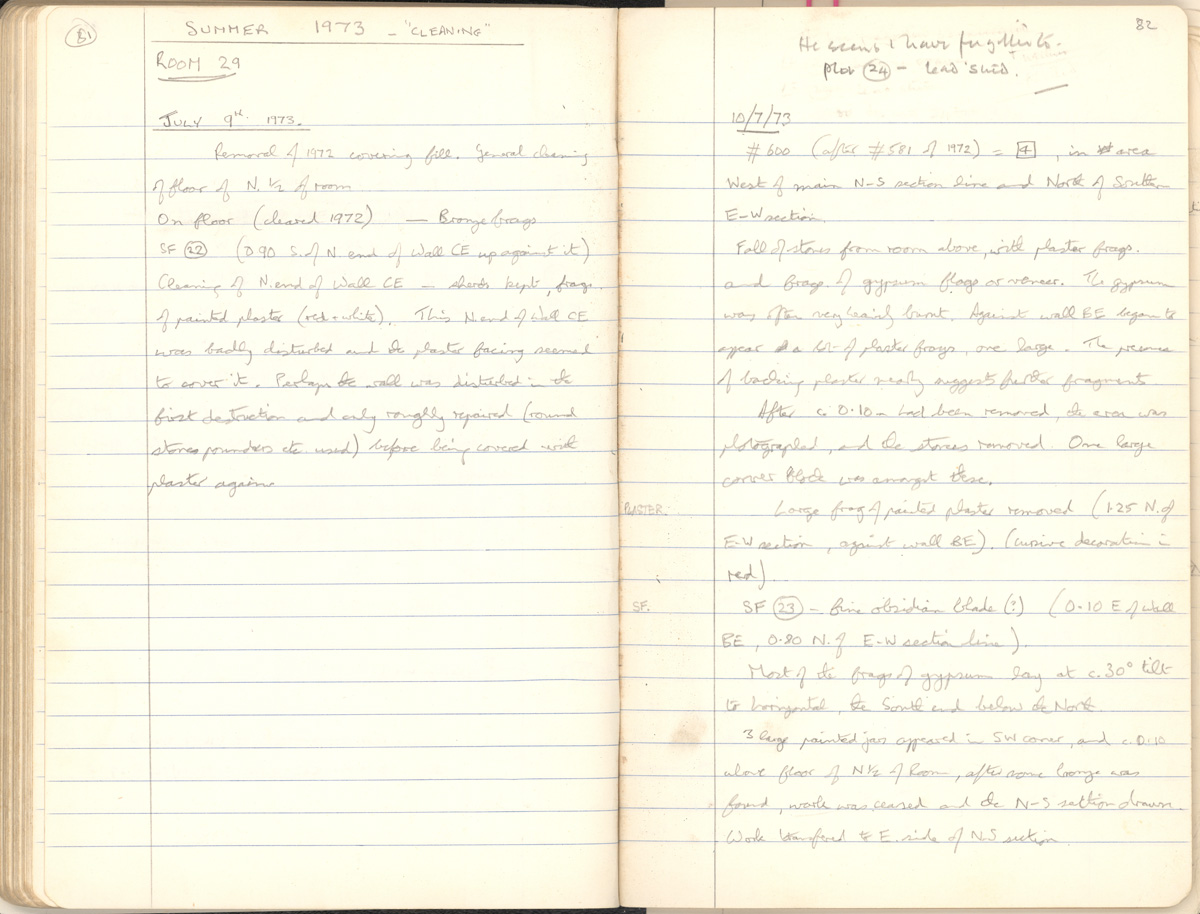 81
SUMMER 1973 - "CLEANING"
ROOM 29
JULY 9th 1973.
Removal of 1972 covering fill. General cleaning
of floor of N. 1/2 of room
On floor (cleared 1972) — Bronze frags
SF (22) (0.90 S. of N. end of Wall CE up against it)
Cleaning of N. end of Wall CE – sherds kept, frags.
of painted plaster (red + white). This N. end of Wall CE
was badly disturbed and the plaster facing seemed
to cover it. Perhaps the wall was disturbed in the
first destruction and only roughly repaired (round
stones pounders etc. used) before being covered with
plaster again.
82
He seems I have forgotten to.
plot (24) – lead shed.
10/7/73
# 600 (after # 581 of 1972) = [4], in area
West of main N-S section line and North of Southern
E-W section.
Fall of stones from room above, with plaster frags.
and frags. of gypsum flags or veneer. The gypsum
was often very heavily burnt. Against wall BE began to
appear a lot of plaster frags, one large. The presence
of backing plaster nearby suggests further fragments.
After c. 0.10 m had been removed, the area was
photographed, and the stones removed. One large
corner block was amongst these.
PLASTER. Large frag of painted plaster removed (1.25 N. of
E-W section, against wall BE). (cursive decoration in
red).
SF. SF (23) – fine obsidian blade (?) (0.10 E of Wall
BE, 0.80 N. of E-W section line).
Most of the frags of gypsum lay at c. 30° tilt
to horizontal, the South end below the North.
3 large painted jars appeared in SW corner, and c. 0.10
above floor of N 1/2 of Room, after some bronze was
found, work was ceased and the N-S section drawn.
Work transfered to E. side of N.S section.